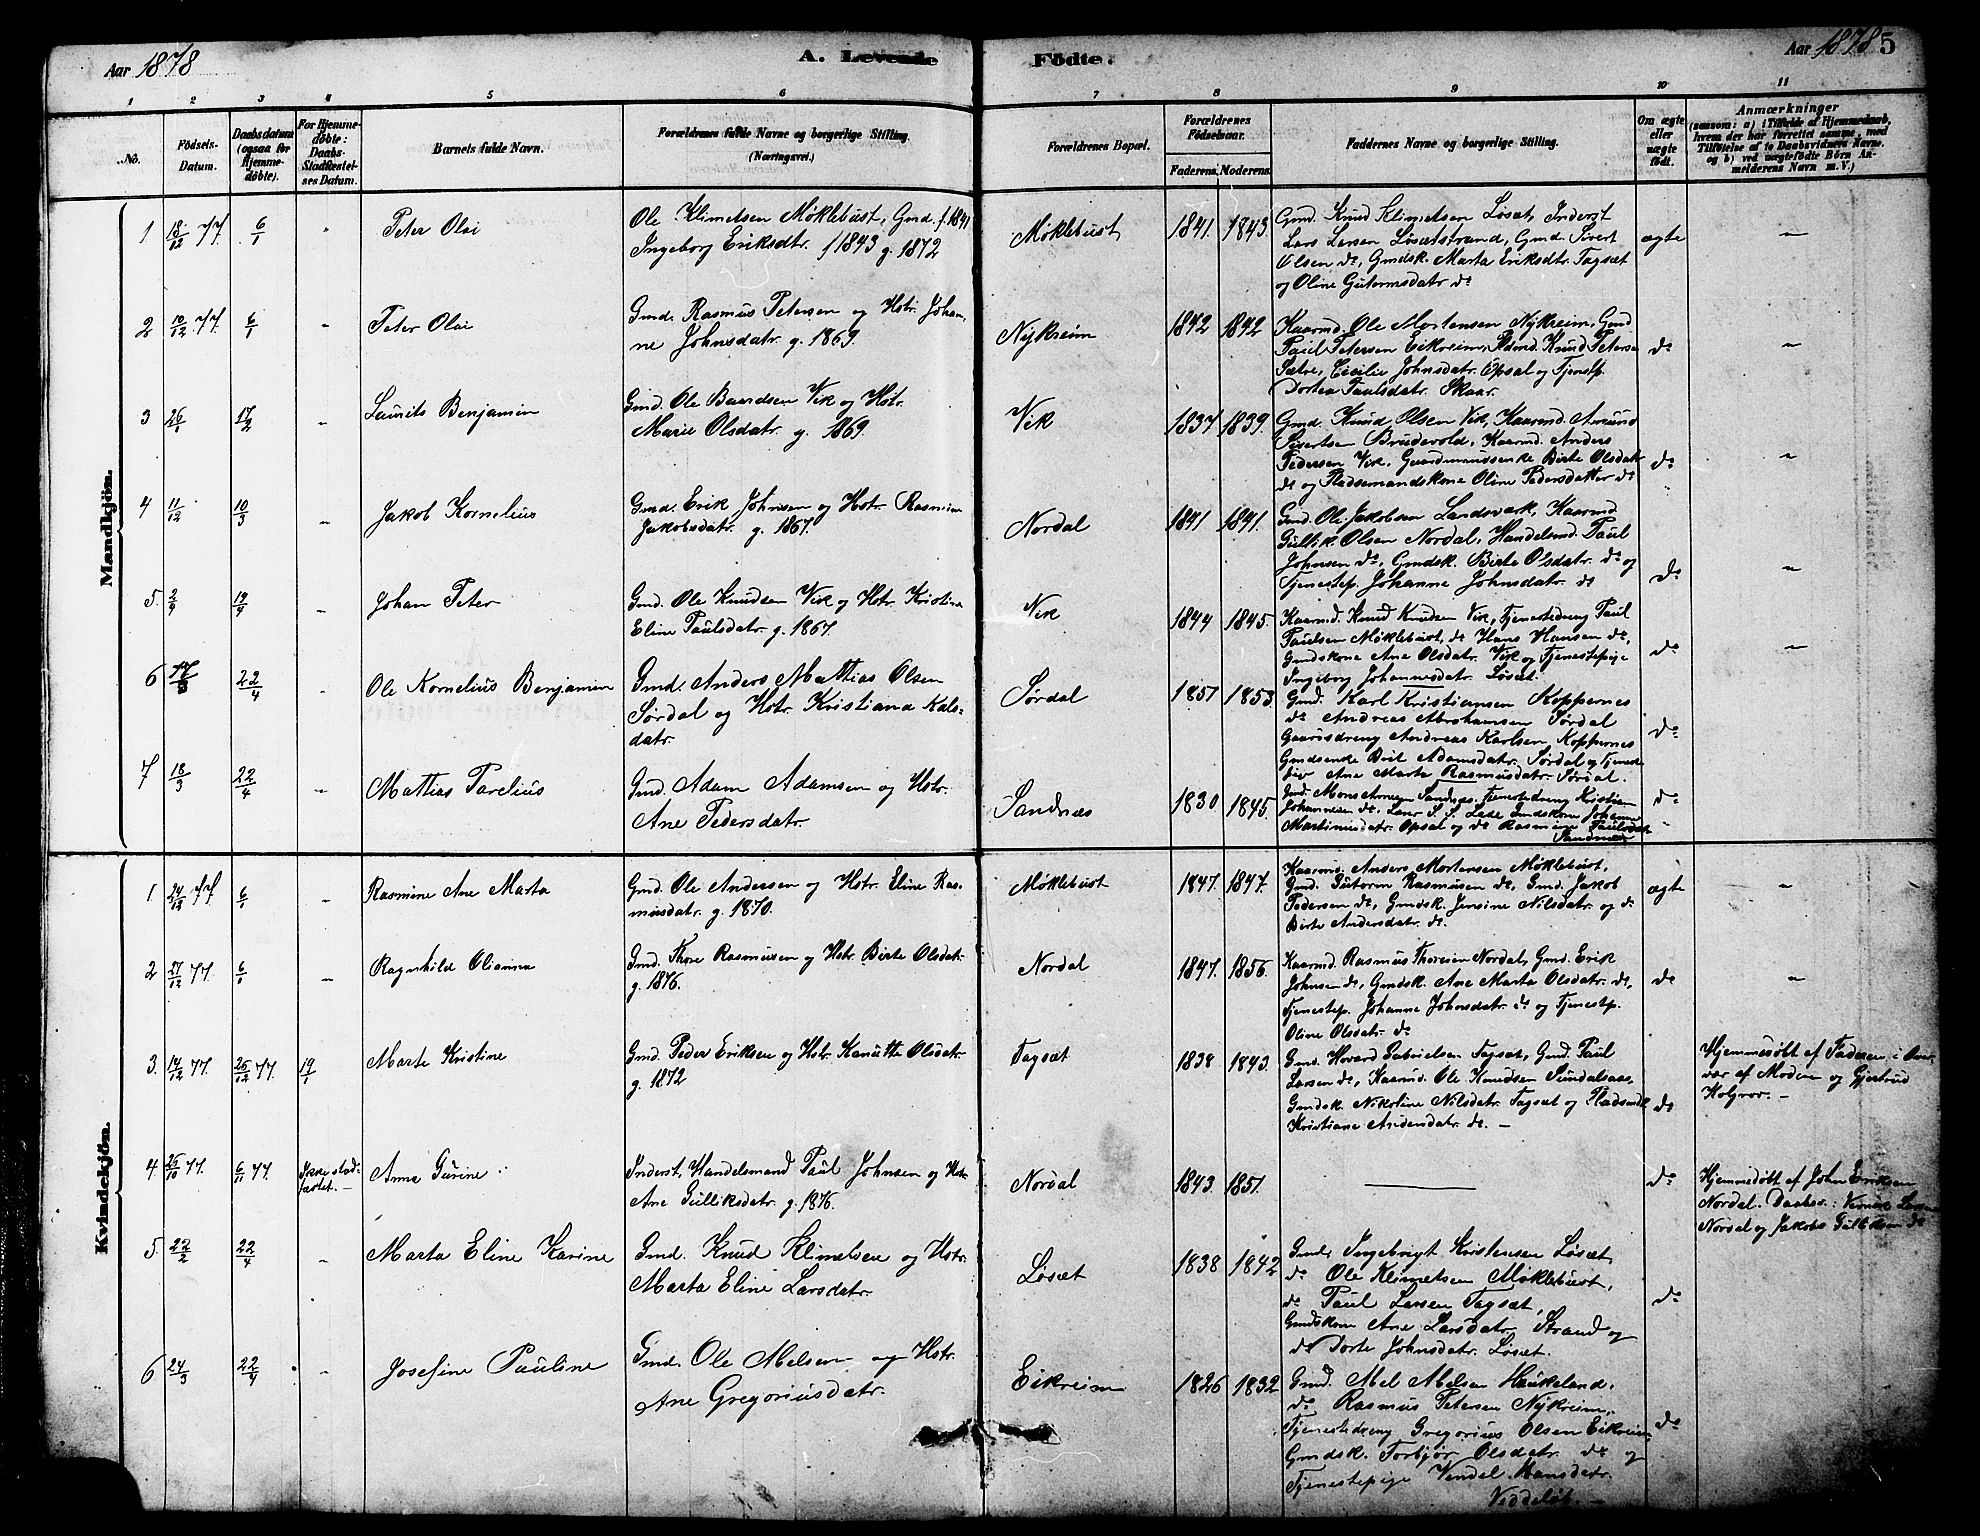 Aar 1878
A. Levende
Födte.
Aar 1878 5
1 2 3 4 5 6 7 8 9 10 11
No.
Födsels-
Datum.
Daabsdatum
(ogsaa for
Hjemme-
döbte).
For Hjemme-
döbte:
Daabs-
Stadfæstel-
ses Datum.
Barnets fulde Navn.
Forældrenes fulde Navne og borgerlige Stilling.
(Næringsvei.)
Forældrenes Bopæl.
Forældrenes
Födselsaar.
Faderens. Moderens.
Faddernes Navne og borgerlige Stilling.
Om ægte
eller
uægte
födt.
Anmærkninger
(saasom: a) i Tilfælde af Hjemmedaab,
hvem der har forrettet samme, med
Tilföielse af to Daabsvidners Navne.
og b) ved uægtefödte Börn An-
melderens Navn m. V.)
Mandkjön.
1 18/12 77 6/1 Peter Olai
Ole Klimetsen Møklebust, Gmd. f 1841
Ingeborg Eriksdtr. f 1843 g. 1872
Møklebust 1841 1843
Gmd. Knud Klimetsen Løsæt, Inderst
Lars Larsen Løsætstrand, Gmd. Sivert
Olsen do, Gmdsk. Marta Eriksdtr. Tagsæt
og Oline Gutormsdatr do
ægte
2 10/12 77. 6/1 Peter Olai
Gmd. Rasmus Petersen og Hstr. Johan-
ne Johnsdatr. g. 1869.
Nykreim 1842 1842
Kaarmd. Ole Mortensen Nykreim, Gmd
Paul Petersen Eikreim, Knud Petersen
Sætre, Cecilie Johnsdatr. Opsal og Tjenstp.
Dortea Paulsdatr. Skaar.
do
3 26/1 17/2 Laurits Benjamin
Gmd. Ole Baardsen Vik og Hstr.
Marie Olsdatr. g. 1869.
Vik 1837 1839.
Gmd. Knud Olsen Vik, Kaarmd. Amund
Sivertsen Brudevold, Kaarmd. Anders
Pedersen Vik, Gaardmandsenke Birte Olsdatr
do og Pladsemandskone Oline Pedersdatter do
do
4 11/12 10/3 Jakob Kornelius
Gmd. Erik Johnsen og Hstr. Rasmine
Jakobsdatr. g. 1867.
Nordal 1841 1841.
Gmd. Ole Jakobsen Landsvark, Kaarmd
Gullik Olsen Nordal, Handelsmd. Paul
Johnsen do, Gmdsk. Birte Olsdatr. do og
Tjenestep. Johanne Johnsdatr. do
do
5. 2/4 19/4 Johan Peter
Gmd. Ole Knudsen Vik og Hstr. Kristine
Eline Paulsdatr. g. 1867.
Vik 1844 1845.
Kaarmd. Knud Knudsen Vik, Tjenestedreng Paul
Paulsen Møklebust, do Hans Hansen do,
Gmdskone Ane Olsdatr. Vik og Tjenestepige
Ingeborg Johannesdatr. Løsæt.
do
6 22/4 Ole Kornelius Benjamin
Gmd. Anders Mattias Olsen
Sørdal og Hstr. Kristiana Kals-
datr.
Sørdal 1851 1853
Gmd. Karl Kristiansen Koppernes
do Andreas Abrahamsen Sørdal
Gaardsdreng Andreas Karlsen Koppernes
Gmdsenke Brit Adamsdatr. Sørdal og Tjeneste
Ane Marta Rasmusdatr. Sørdal.
do
7 18/3 22/4 Mattias Parelius
Gmd. Adam Adamsen og Hstr.
Ane Pedersdatr.
Sandnæs 1830 1845.
Gmd. Mons Sandnæs, Tjenestedreng Kristian
Johannesen do. Gmdskone Johanne
Martinusdatr. Opsal og do Rasmine Paulsdatr
Sandnæs
do
Kvindekjön.
1 24/12 77 6/1 Rasmine Ane Marta
Gmd. Ole Andersen og Hstr. Eline Ras-
musdatr. g. 1870.
Møklebust 1847. 1847.
Kaarmd. Anders Mortensen Møklebust,
Gmd. Gutorm Rasmusen do, Gmd. Jakob
Pedersen do, Gmdsk. Jensine Nilsdatr. og do
Birte Andersdatr. do.
ægte
2 27/12 77. 6/1 Ragnhild Olianna
Gmd. Thore Rasmusen og Hstr. Birte Olsdatr.
g. 1876.
Nordal 1847. 1856.
Kaarmd. Rasmus Thoresen Nordal, Gmd. Erik
Johnsen do, Gmdsk. Ane Marta Olsdatr. do,
Tjenestep. Johanne Johnsdatr. do og Tjenestp.
Oline Olsdatr. do
do
3. 14/12 77. 26/12 77. 19/1 Marte Kristine
Gmd. Peder Eriksen og Hstr. Kanutte Olsdatr.
g. 1872
Tagsæt 1838 1843.
Gmd. Hovard Gabrielsen Tagsæt, Gmd. Paul
Larsen do, Kaarmd. Ole Knudsen Sundalsaas,
Gmdsk. Nikoline Nilsdatr. Tagsæt og
Kristiane Andersdatr. do. —
do
Hjemmedøbt af Faderen i Over-
vær af Moderen og Gjertrud
Holgrov. —
4 25/10 77. 6/11 77. Ikke stad-
fæstet. —
Anna Gurine
Inderst, Handelsmand Paul Johnsen og Hstr
Ane Gulliksdatr. g. 1876.
Nordal 1843. 1851.
do
Hjemmedøbt af John Eriksen
Nordal. Daabsv.: Larsen
Nordal og Jakob Gulliksen do
5. 22/2 22/4 Marta Eline Karine
Gmd. Knud Klimetsen og Hstr.
Marta Eline Larsdatr.
Løsæt 1838 1842
Gmd. Ingebrigt Kristensen Løsæt,
do Ole Klimetsen Møklebust,
do Paul Larsen Tagsæt,
Gmdskone Ane Larsdatr. Strand og
do Dorte Johnsdatr. Løsæt.
do
6 24/3 22/4 Josefine Pauline
Gmd. Ole Melsen og Hstr.
Ane Gregoriusdatr.
Eikreim 1826 1832
Gmd. Mel Melsen Haukeland.
do Rasmus Petersen Nykreim,
Tjenestedreng Gregorius Olsen Eikreim
Gmdsk. Torbjør Olsdatr. do og
Tjenestepige Vendel Mansdatr.
do